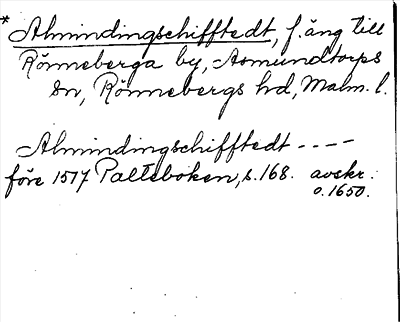 * Almindingschifftedt, f. äng till
Rönneberga by, Asmundtorps
sn, Rönnebergs hd, Malm. l.
Almindingschifftedt ----
före 1517 Palteboken, s. 168. avskr.
o. 1650.